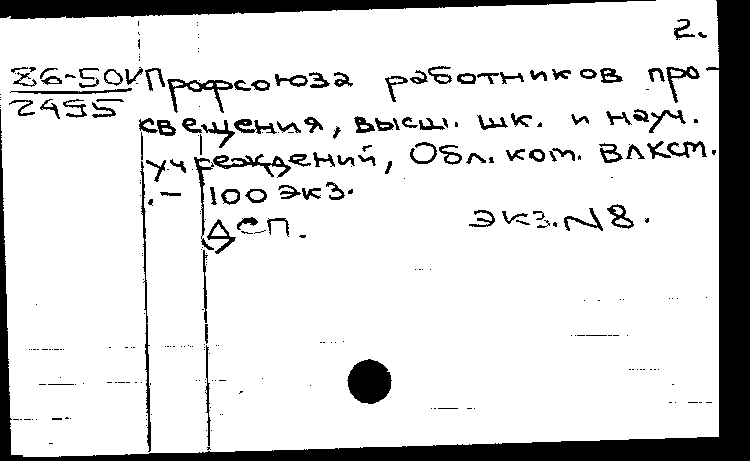 2.
86-50V Профсоюза работников про-
2495
свещения, высш. шк. и науч.
учреждений, Обл. ком. ВЛКСМ.
.- 100 экз.
ДСП. экз. N 8.